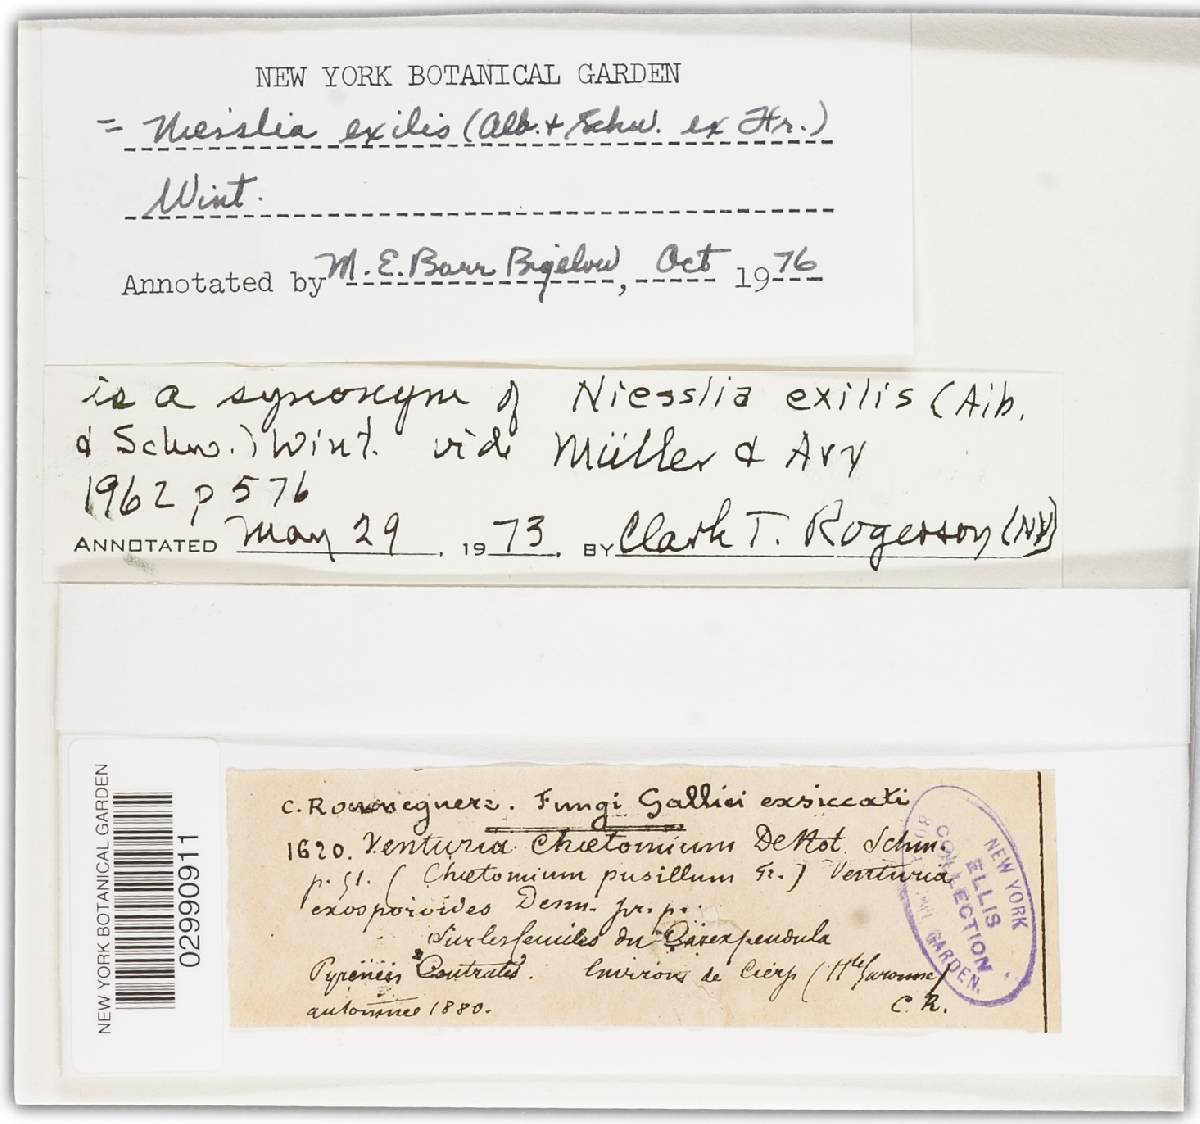 NEW YORK BOTANICAL GARDEN
= Niesslia exilis (Alb. & Schw. ex Fr.)
Wint.
Annotated by M. E. Barr Bigelow, Oct 1976
is a synonym of Niesslia exilis (Alb.
& Schw.) Wint. vide Müller & Arx
1962 p 576
ANNOTATED May 29, 1973. BY Clark T. Rogerson (NY)
NEW YORK BOTANICAL GARDEN
02990911
C. Roumeguere. Fungi Gallici exsiccati
1620. Venturia Chœtomium De Not. Schm.
p. ( Chœtomium pusillum Fr. ) Venturia
exosporioides Desm. pr. p.
Sur les feuilles du Carex pendula
Pyrénées Centrales. Environs de Cierp (Hte Garonne)
automne 1880.
C. R.
NEW YORK
ELLIS
COLLECTION
GARDEN.